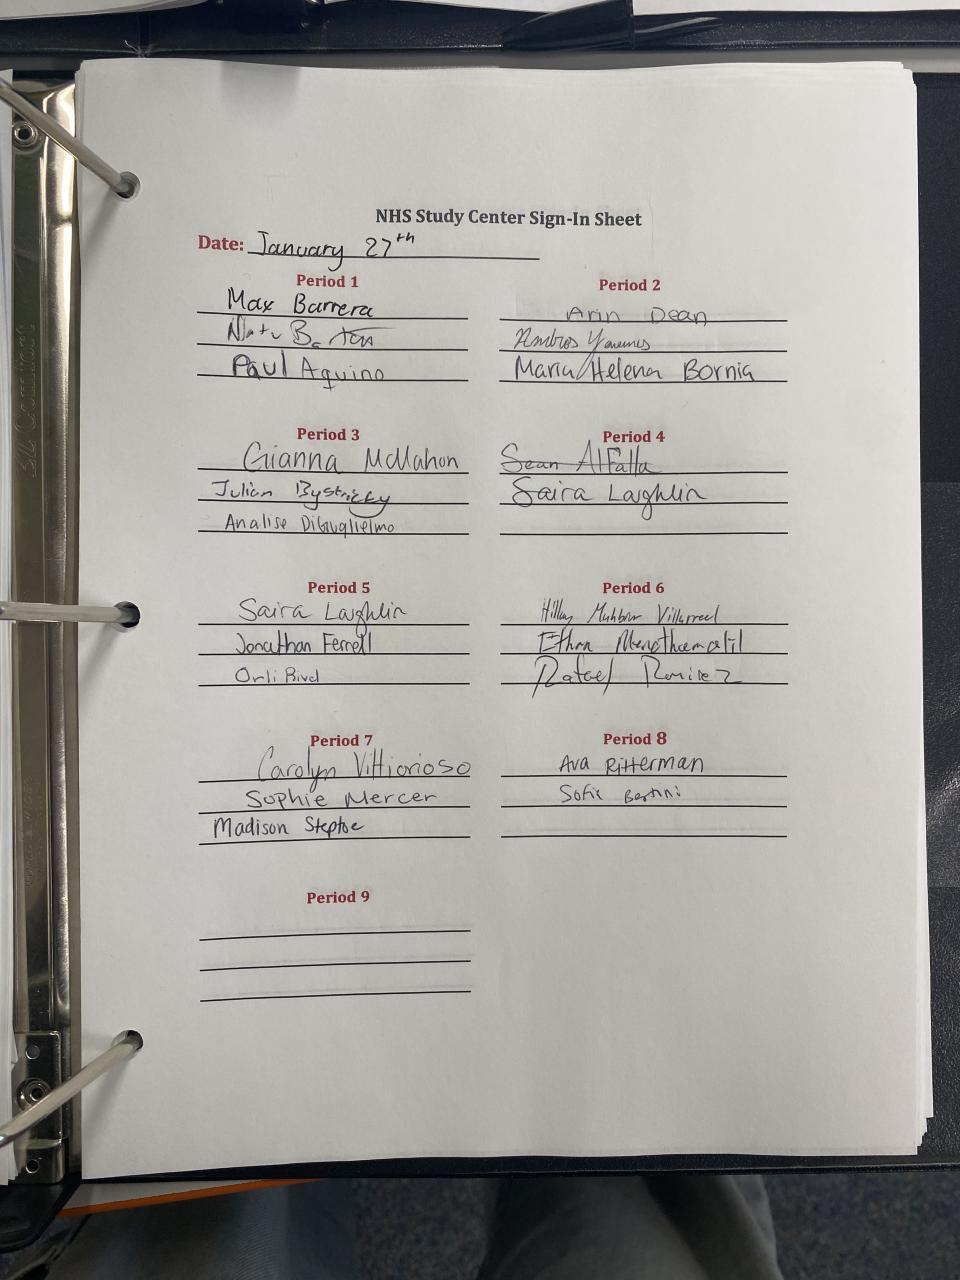 NHS Study Center Sign-In Sheet
Date: January 27th
Period 1
Max Barrera
Paul Aquino
Period 2
Arin Dean
Ambros
Maria/Helena Bornia
Period 3
Gianna McMahon
Julian Bystricky
Analise DiGuglielmo
Period 4
Sean AlFalla
Saira Laughlin
Period 5
Saira Laughlin
Jonathan Ferrell
Orli
Period 6
Villarreal
Ethan
Rafael Ramirez
Period 7
Carolyn Vittorioso
Sophie Mercer
Madison Steptoe
Period 8
Ava Ritterman
Sofie
Period 9